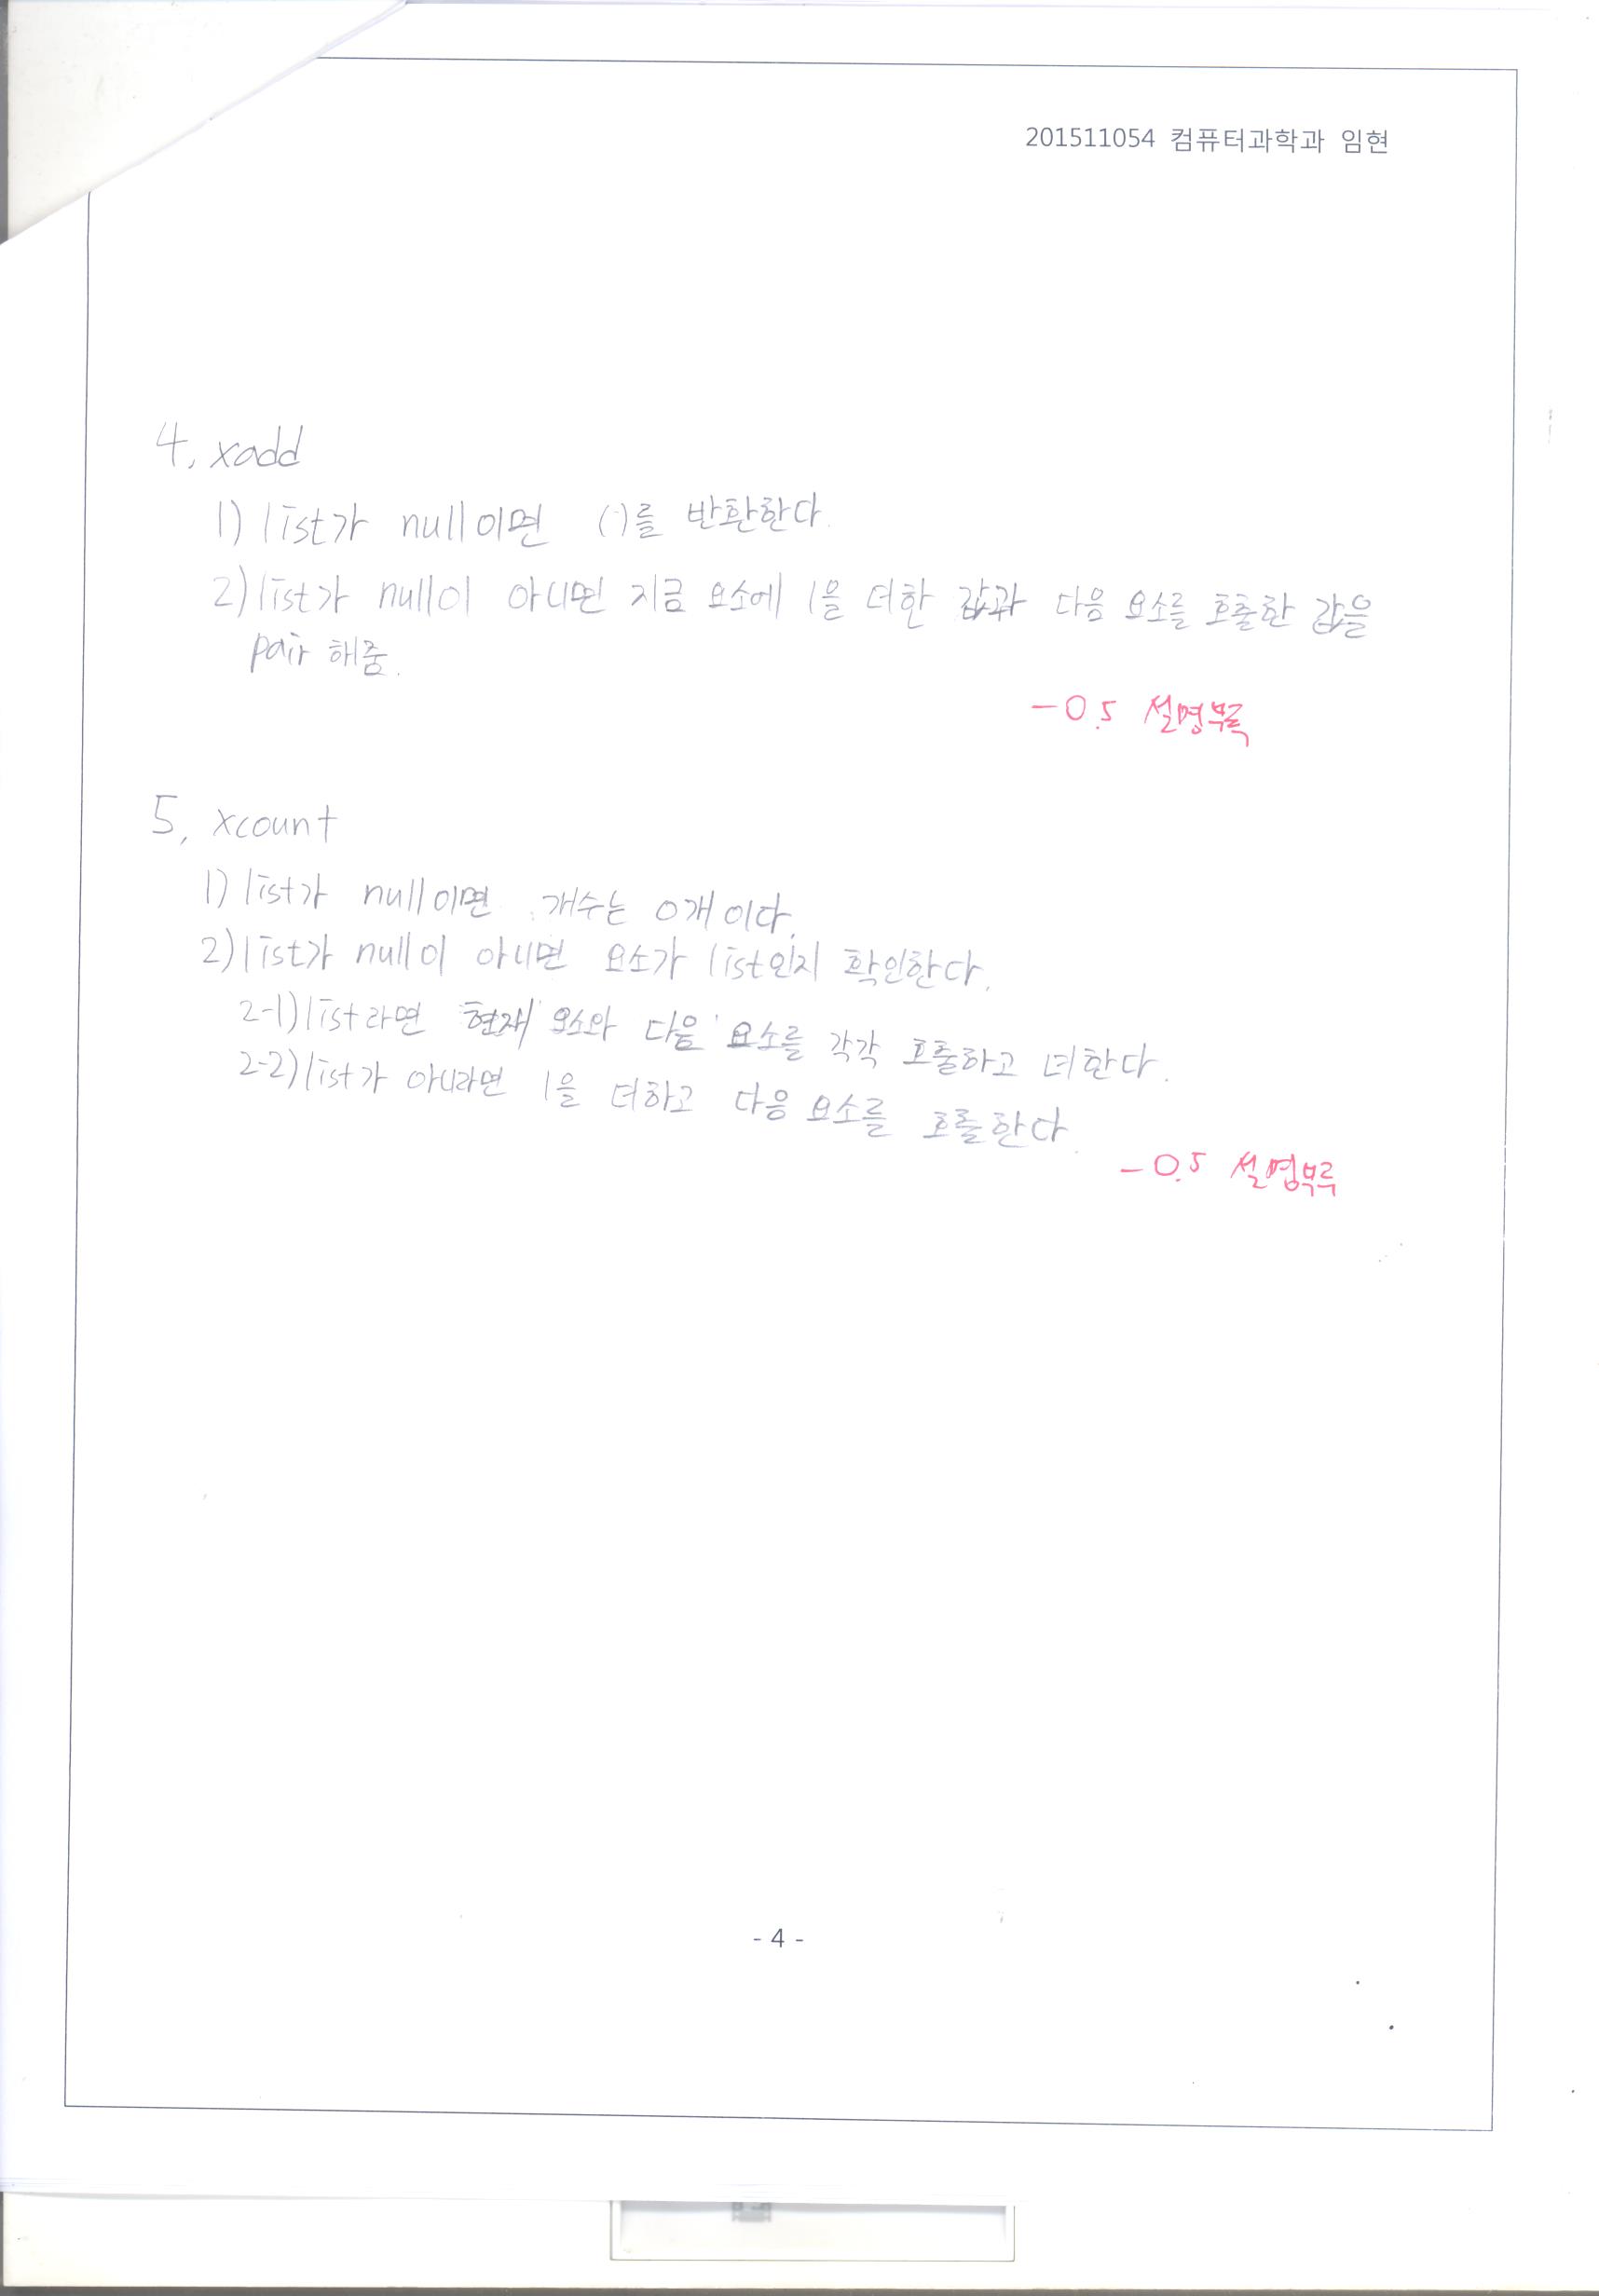 201511054 컴퓨터과학과 임현
4, xadd
1) list가 null이면 ()를 반환한다.
2) list가 null이 아니면 지금 요소에 1을 더한 값과 다음 요소를 호출한 값을
pair 해줌.
-0.5 설명부족
5, xcount
1) list가 null이면 개수는 0개이다.
2) list가 null이 아니면 요소가 list인지 확인한다.
2-1) list라면 현재 요소와 다음 요소를 각각 호출하고 더한다.
2-2) list가 아니라면 1을 더하고 다음 요소를 호출한다
-0.5 설명부족
- 4 -